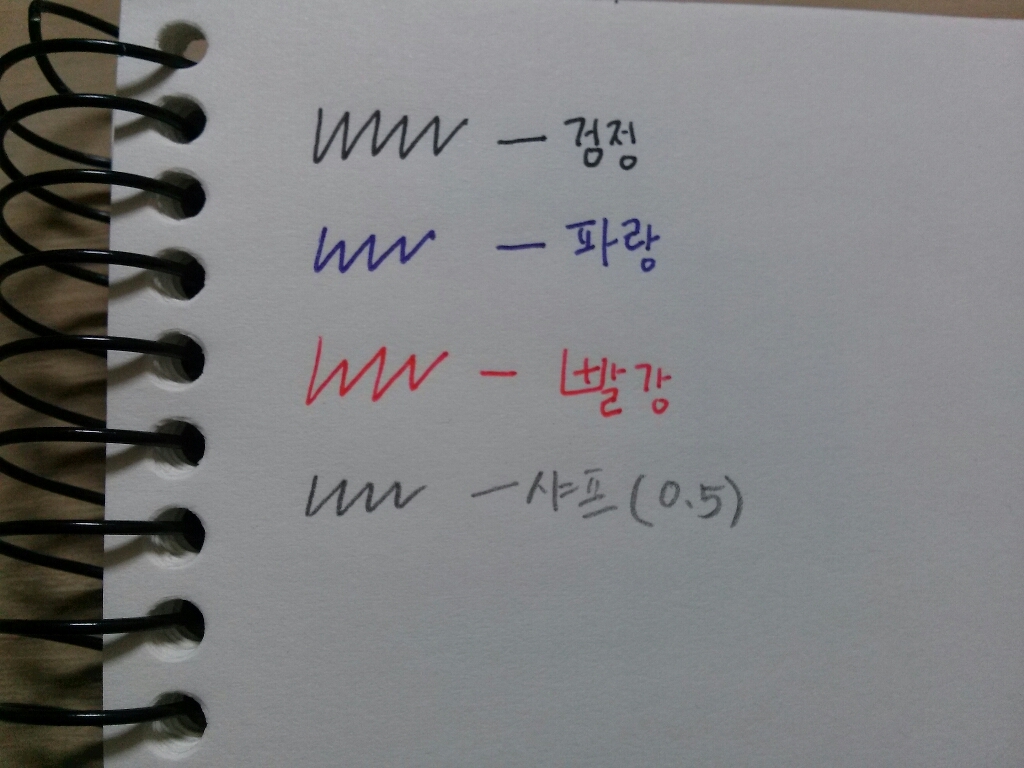 — 검정
— 파랑
— 빨강
— 샤프 (0.5)